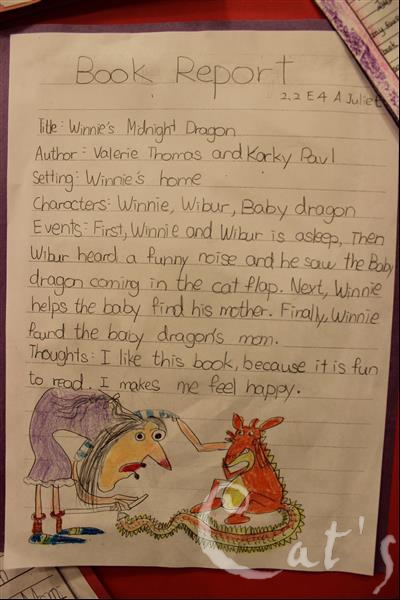 Book Report
2,2 E4 A Juliet
Title: Winnie's Midnight Dragon
Author: Valerie Thomas and Korky Paul
Setting: Winnie's home
Characters: Winnie, Wibur, Baby dragon
Events: First, Winnie and Wibur is asleep, Then
Wibur heard a funny noise and he saw the Baby
dragon coming in the cat flap. Next, Winnie
helps the baby find his mother. Finally, Winnie
found the baby dragon's mom.
Thoughts: I like this book, because it is fun
to read. I makes me feel happy.
Cat's